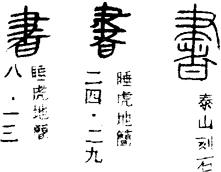 書
泰山刻石
書
睡虎地簡
二四·二九
書
睡虎地簡
八·一三